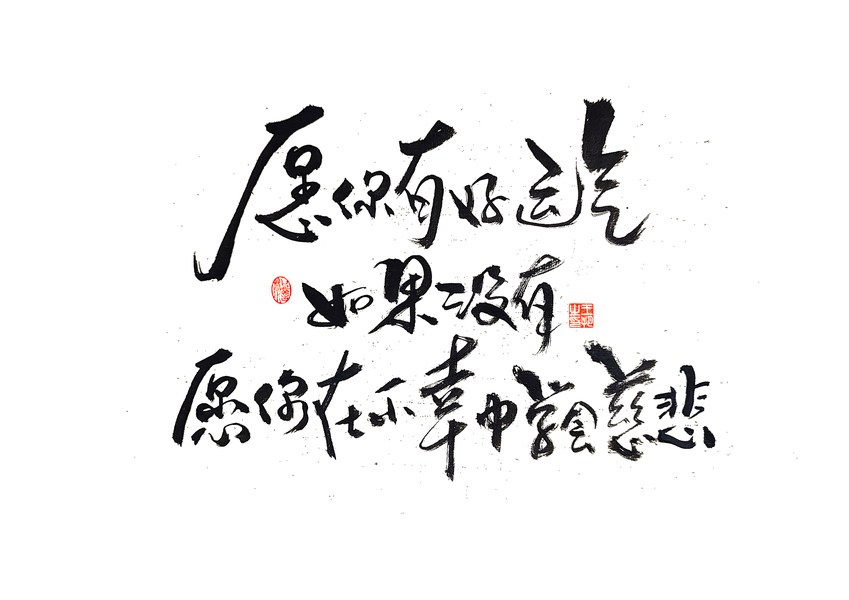 愿你有好运气
如果没有
愿你在不幸中学会慈悲